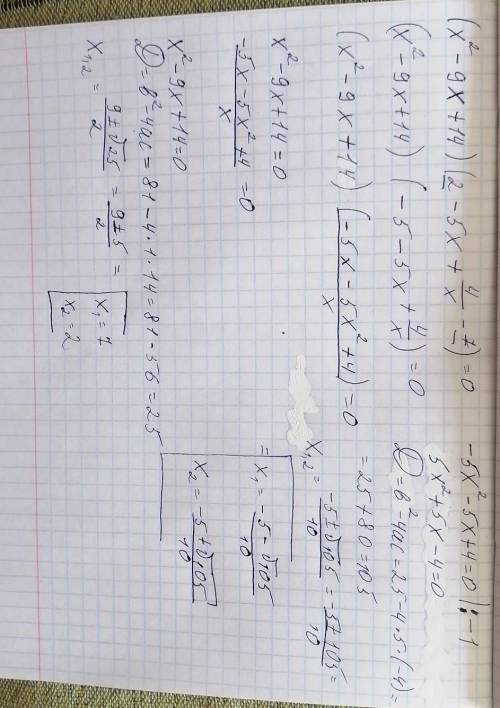 (x² - 9x + 14) (2 - 5x + 4/x - 7) = 0
(x² - 9x + 14) (-5 - 5x + 4/x) = 0
(x² - 9x + 14) (-5x - 5x² + 4 / x) = 0
x² - 9x + 14 = 0
-5x - 5x² + 4 / x = 0
x² - 9x + 14 = 0
D = в² - 4ac = 81 - 4·1·14 = 81 - 56 = 25
x₁,₂ = 9 ± √25 / 2 = 9 ± 5 / 2 =
x₁ = 7
x₂ = 2
-5x² - 5x + 4 = 0 | : -1
5x² + 5x - 4 = 0
D = в² - 4ac = 25 - 4·5·(-4) =
= 25 + 80 = 105
x₁,₂ = -5 ± √105 / 10 = -5 ± 105 / 10 =
= x₁ = -5 - √105 / 10
x₂ = -5 + √105 / 10